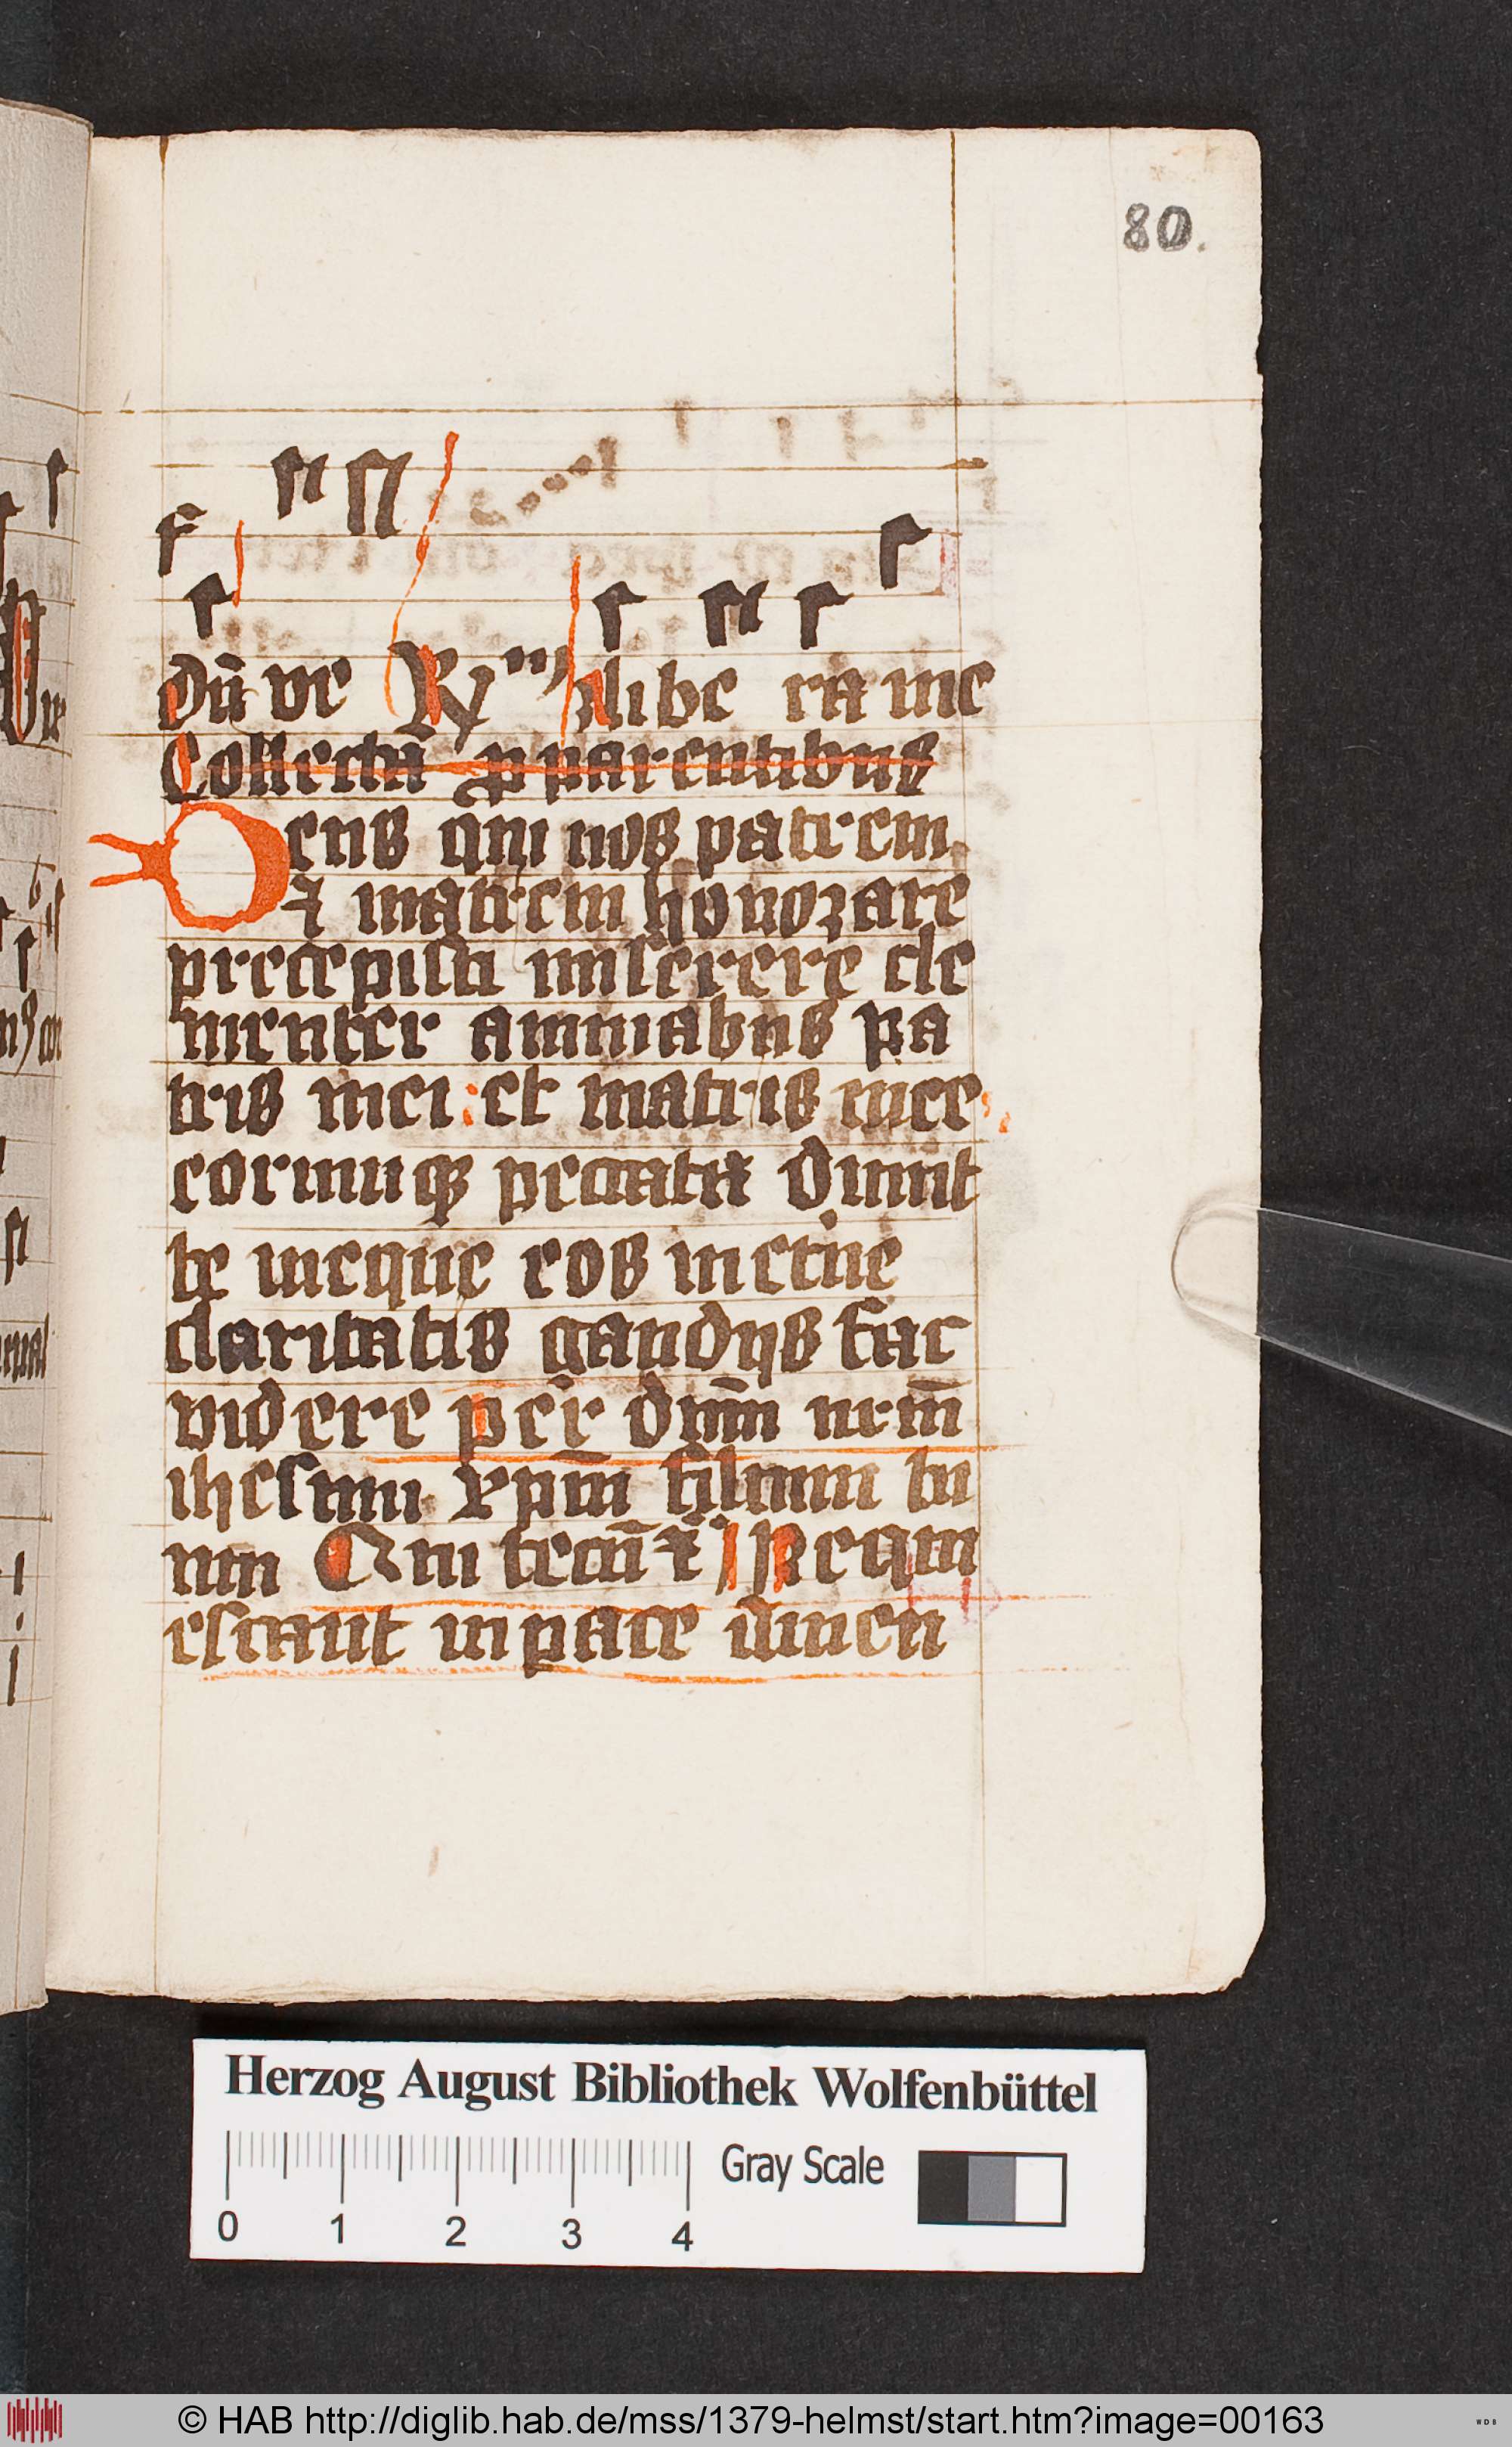 80.
Dūm ve Ry Libe ra me
Collectā ꝓ parentibus
Deus qui nos patrem
⁊ matrem honorare
precepisti miserere cle
menter animabus pa
tris mei : et matris mee
eorumqꝫ peccata dimit
te meque eos in et̄ne
claritatis gaudijs fac
videre per dn̄m nr̄m
ihesum xp̄m filium tu
um Qui tecū ⁊ Requi
escant in pace Amen
Herzog August Bibliothek Wolfenbüttel
0 1 2 3 4 Gray Scale
© HAB http://diglib.hab.de/mss/1379-helmst/start.htm?image=00163